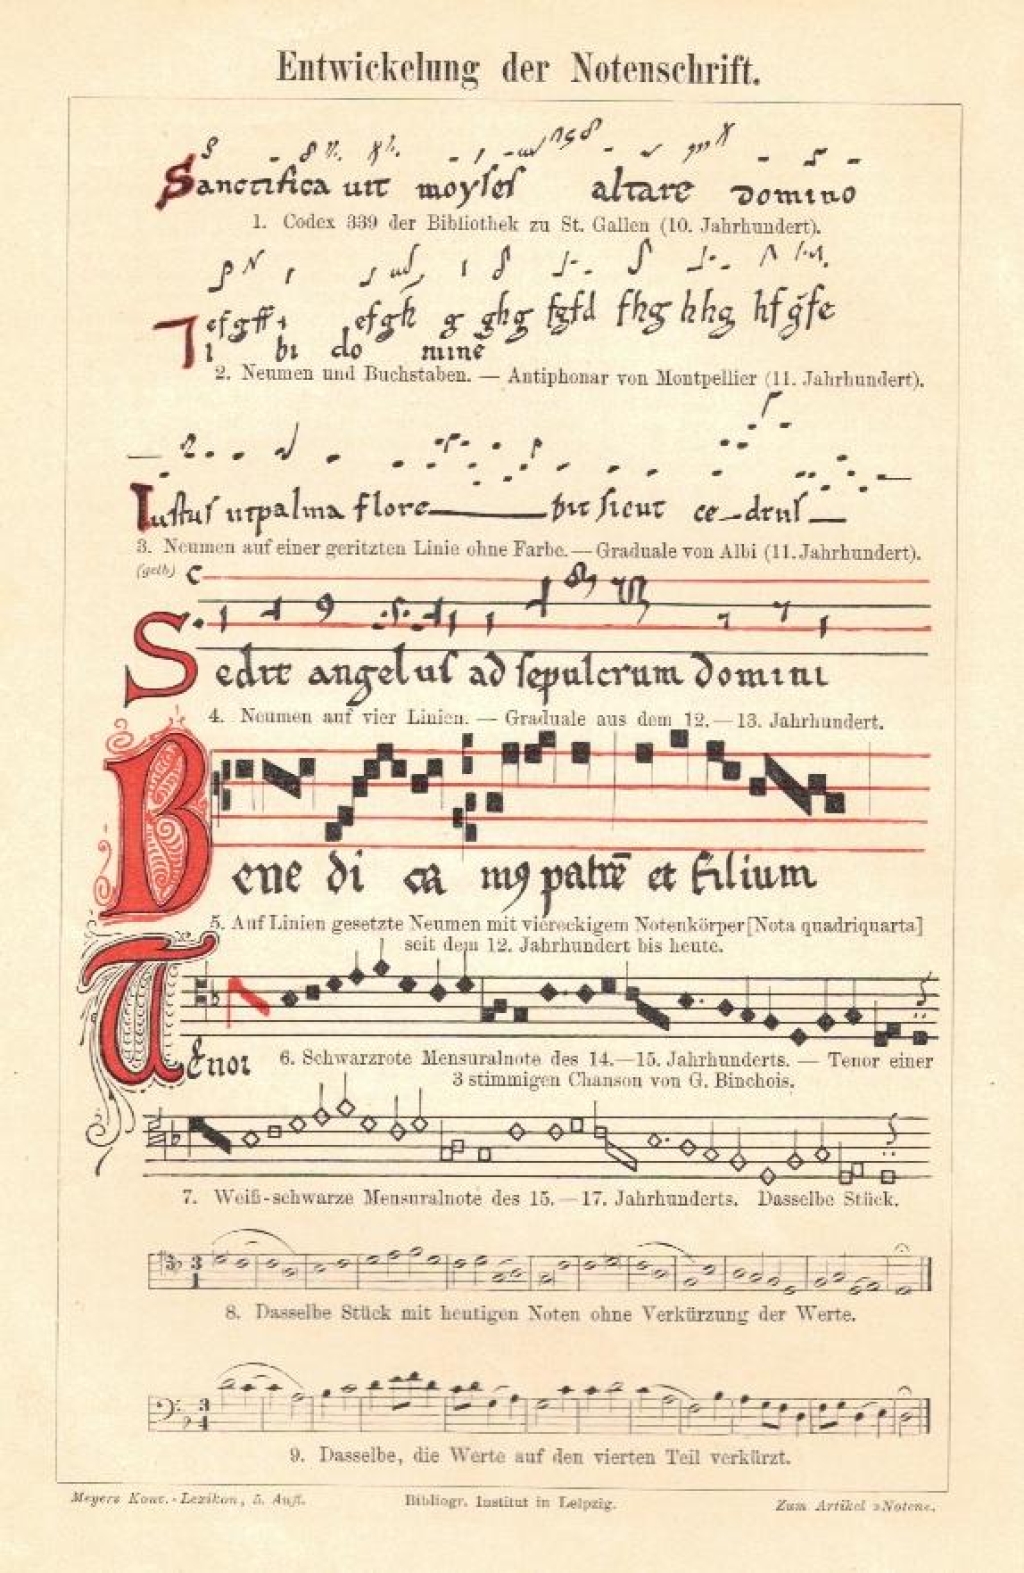 Entwickelung der Notenschrift.
Sanctifica uit moyses altare domino
1. Codex 339 der Bibliothek zu St. Gallen (10. Jahrhundert).
efgff efgh g ghg fgfd fhg hhg hf gfe
Ti bi do mine
2. Neumen und Buchstaben. — Antiphonar von Montpellier (11. Jahrhundert).
Iustus utpalma flore bit sicut ce_drus
3. Neumen auf einer geritzten Linie ohne Farbe. — Graduale von Albi (11. Jahrhundert).
(gelb) C
Sedit angelus ad sepulcrum domini
4. Neumen auf vier Linien. — Graduale aus dem 12.—13. Jahrhundert.
Bene di ca mꝰ patrē et filium
5. Auf Linien gesetzte Neumen mit viereckigem Notenkörper [Nota quadriquarta]
seit dem 12. Jahrhundert bis heute.
Tenor
6. Schwarzrote Mensuralnote des 14.—15. Jahrhunderts. — Tenor einer
3 stimmigen Chanson von G. Binchois.
7. Weiß-schwarze Mensuralnote des 15.—17. Jahrhunderts. Dasselbe Stück.
3
1
8. Dasselbe Stück mit heutigen Noten ohne Verkürzung der Werte.
3
4
9. Dasselbe, die Werte auf den vierten Teil verkürzt.
Meyers Konv.-Lexikon, 5. Aufl. Bibliogr. Institut in Leipzig. Zum Artikel »Noten«.